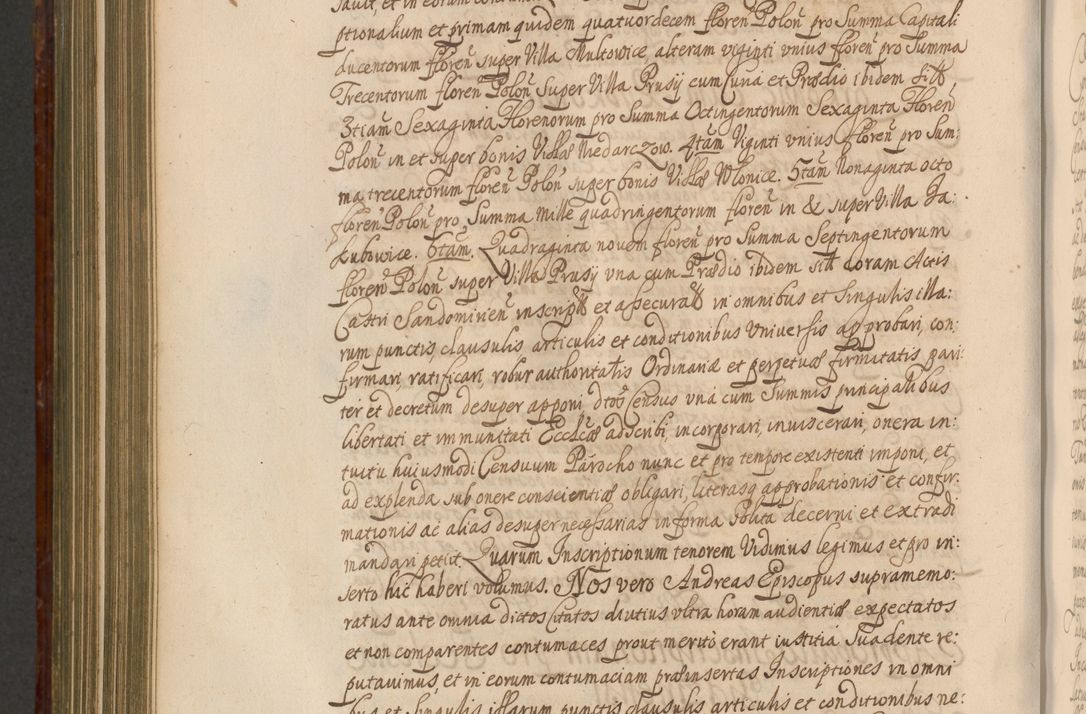 savit, et in eorum contumaciam
ptionalium et primam quidem quatuordecem floren̄ Polon̄ pro Summa Capitali
ducentorum floren̄ super Villa Multowice, alteram viginti vnius floren̄ pro Summa
Trecentorum floren̄ Polon̄ super Villa Prusy cum Curia et Prædio ibidem sitt
3tiam Sexaginta Florenorum pro Summa Octingentorum Sexaginta Floren̄
Polon̄ in et super bonis Villæ Niedarczow. 4tam Viginti vnius floren̄ pro Sum:
ma trecentorum floren̄ Polon̄ super bonis Villæ Wlonice. 5tam Nonaginta octo
floren̄ Polon̄ pro Summa mille quadringentorum floren̄ in & super Villa Ja:
kubowice. 6tam. Quadraginta novem floren̄ pro Summa Septingentorum
floren̄ Polon̄ super Villa Prusy vna cum Prædio ibidem sitt coram Actis
Castri Sandomirien̄ inscriptt et assecuratt in omnibus et singulis illa:
rum punctis, clausulis articulis et conditionibus Universis approbari, con:
firmari, ratificari, robur authoritatis Ordinariæ et perpetuæ firmitatis pari:
ter et decretum desuper apponi, dtos Census vna cum Summis principalibus
libertati et immunitati Ecclicæ adscribi, incorporari, inviscerari, onera in:
tuitu huiusmodi Censuum Parocho nunc et pro tempore existenti imponi, et
ad explenda sub onere conscientiæ obligari, literasq approbationis et confir:
mationis ac alias desuper necessarias in forma Polita decerni et extradi
mandari petiit. Quarum Inscriptionum tenorem Vidimus legimus et pro in:
serto hic haberi volumus. Nos vero Andreas Episcopus supramemo:
ratus ante omnia dictos Citatos diutius vltra horam audientiæ expectatos
et non comparentes contumaces prout merito erant iustitia suadente re:
putavimus, et in eorum contumaciam præinsertas Inscriptiones in omni
bus et singulis illarum punctis clausulis articulis et conditionibus ne: